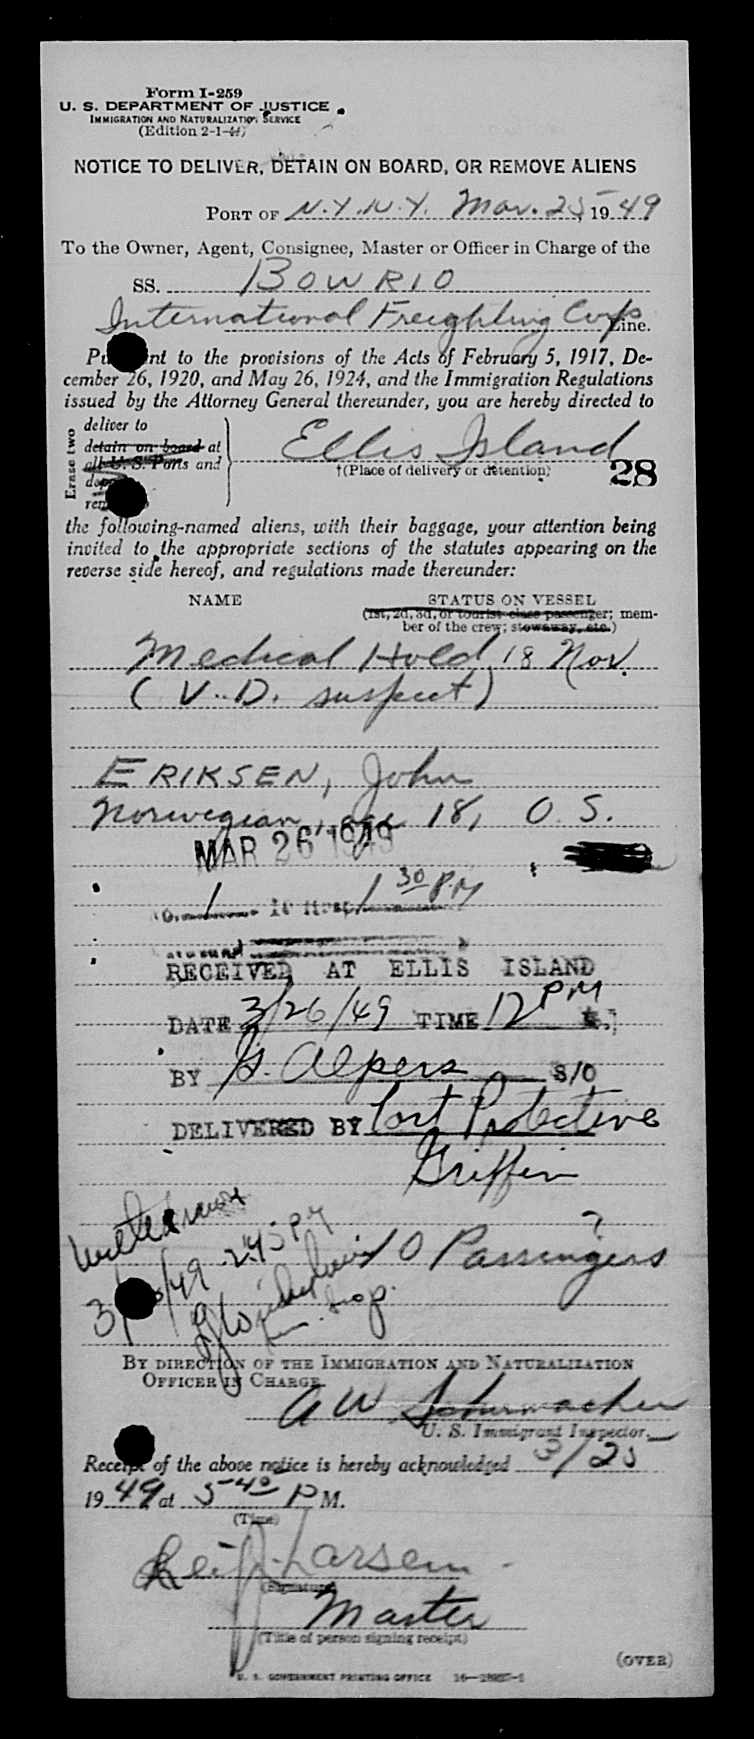 Form I-259
U. S. DEPARTMENT OF JUSTICE
IMMIGRATION AND NATURALIZATION SERVICE
(Edition 2-1-44)
NOTICE TO DELIVER, DETAIN ON BOARD, OR REMOVE ALIENS
PORT OF N.Y. N.Y. Mar. 25, 1949
To the Owner, Agent, Consignee, Master or Officer in Charge of the
SS. BOWRIO
International Freighting Corp Line.
Pu nt to the provisions of the Acts of February 5, 1917, De-
cember 26, 1920, and May 26, 1924, and the Immigration Regulations
issued by the Attorney General thereunder, you are hereby directed to
Erase two
deliver to
detain on board at
all U. S. Ports and
Ellis Island
†(Place of delivery or detention)
28
the following-named aliens, with their baggage, your attention being
invited to the appropriate sections of the statutes appearing on the
reverse side hereof, and regulations made thereunder:
NAME STATUS ON VESSEL
(1st, 2d, 3d, or tourist class passenger; mem-
ber of the crew; stowaway, etc.)
Medical Hold 18 Nov.
(V. D. suspect)
ERIKSEN, John
Norwegian, age 18, O. S.
MAR 26 1949
1 to Hosp 1 30 PM
RECEIVED AT ELLIS ISLAND
DATE 3/26/49 TIME 12 PM
BY G. Alpers S/O
DELIVERED BY Port Protective
Griffin
?
10 Passengers
3/ /49 2:45 PM
Imm. Insp.
BY DIRECTION OF THE IMMIGRATION AND NATURALIZATION
OFFICER IN CHARGE.
A W Schumacher
U. S. Immigrant Inspector.
Receipt of the above notice is hereby acknowledged 3/25
1949 at 5 40 P M.
(Time)
Leif J. Larsen
(Signature)
Master
(Title of person signing receipt)
(OVER)
U. S. GOVERNMENT PRINTING OFFICE